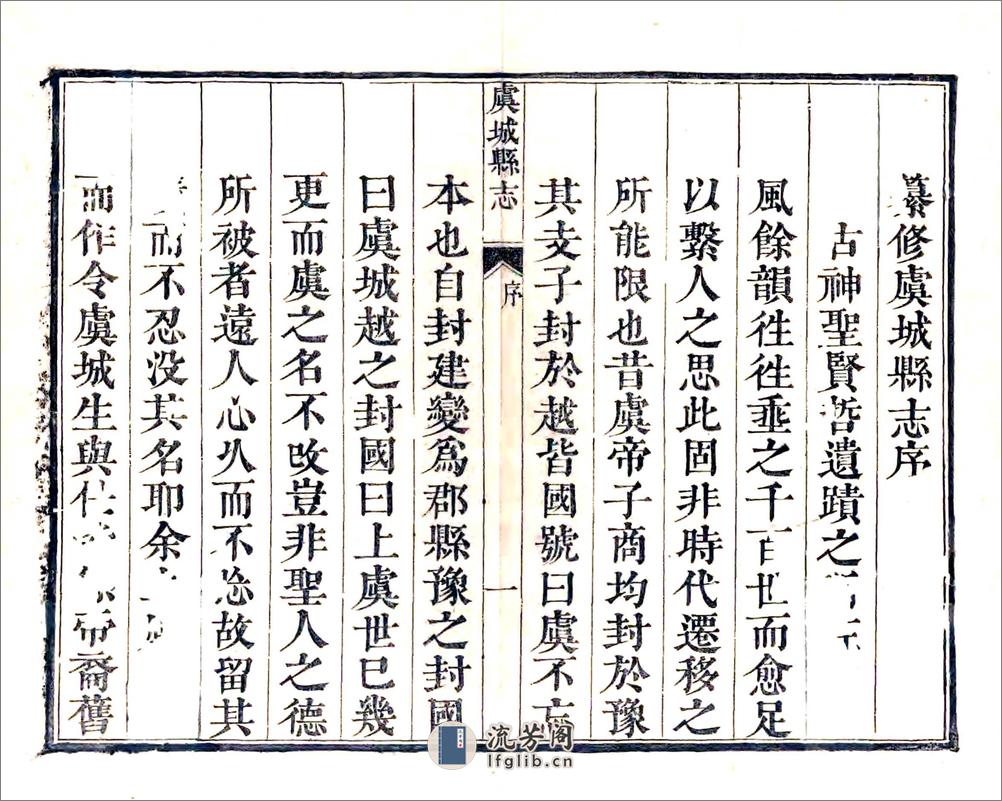 纂修虞城縣志序
古神聖賢哲遺蹟之
風餘韻徃徃垂之千百世而愈足
以繫人之思此固非時代遷移之
所能限也昔虞帝子商均封於豫
其支子封於越皆國號曰虞不忘
虞城縣志
序
一
本也自封建變爲郡縣豫之封國
曰虞城越之封國曰上虞世巳幾
更而虞之名不改豈非聖人之德
所被者遠人心久而不忘故留其
而不忍没其名耶余
而作令虞城生與仕 帝裔舊
流芳阁
lfglib.cn